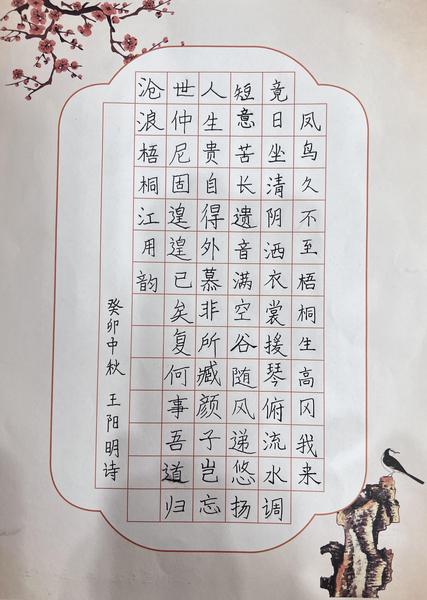 凤鸟久不至梧桐生高冈我来
竟日坐清阴洒衣裳援琴俯流水调
短意苦长遗音满空谷随风递悠扬
人生贵自得外慕非所臧颜子岂忘
世仲尼固遑遑已矣复何事吾道归
沧浪梧桐江用韵
癸卯中秋 王阳明诗